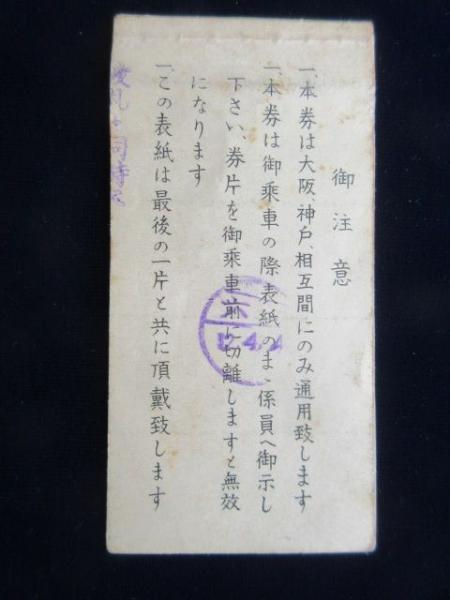 御注意
一、本券は大阪、神戸、相互間にのみ通用致します
一、本券は御乗車の際表紙のまゝ係員へ御示し
下さい、券片を御乗車前に切離しますと無效
になります
一、この表紙は最後の一片と共に頂戴致します
12.4.